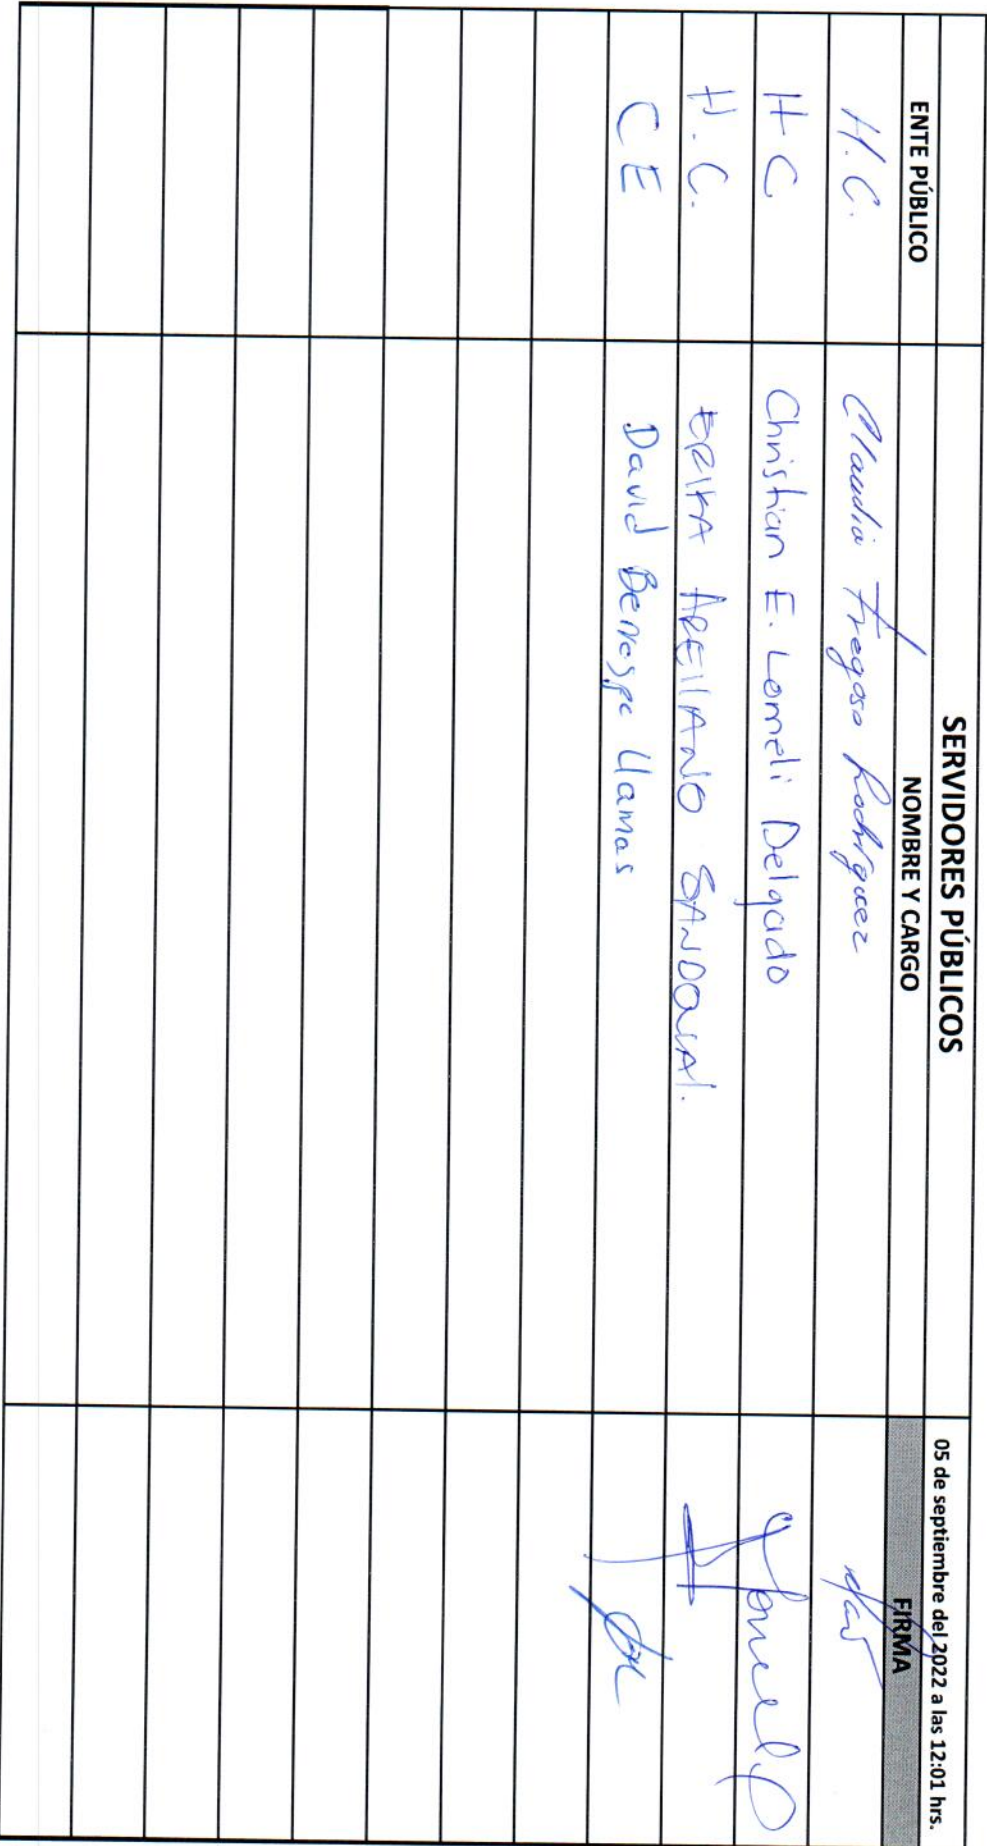 SERVIDORES PÚBLICOS
05 de septiembre del 2022 a las 12:01 hrs.
ENTE PÚBLICO NOMBRE Y CARGO FIRMA
H.C. Claudia Fregoso Rodríguez
H C Christian E. Lomelí Delgado
H.C. ERIKA ARELLANO SANDOVAL.
C E David Llamas